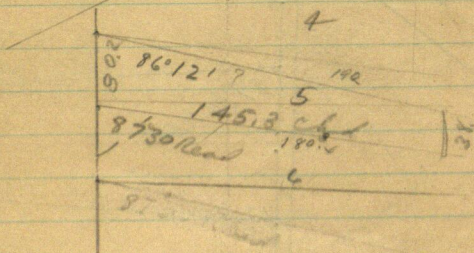 4
80.2
86°121?
190
5
145.3 chd
8730 Read
180.
38
6